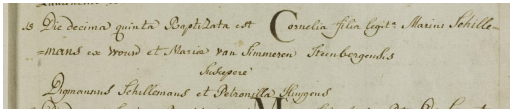 15 Die decima quinta Baptizata est Cornelia filia legit: Marini Schille=
=mans ex Woud et Maria van Simmeren Steenbergensis
Suscepere
Digmannus Schillemans et Petronilla Huygens